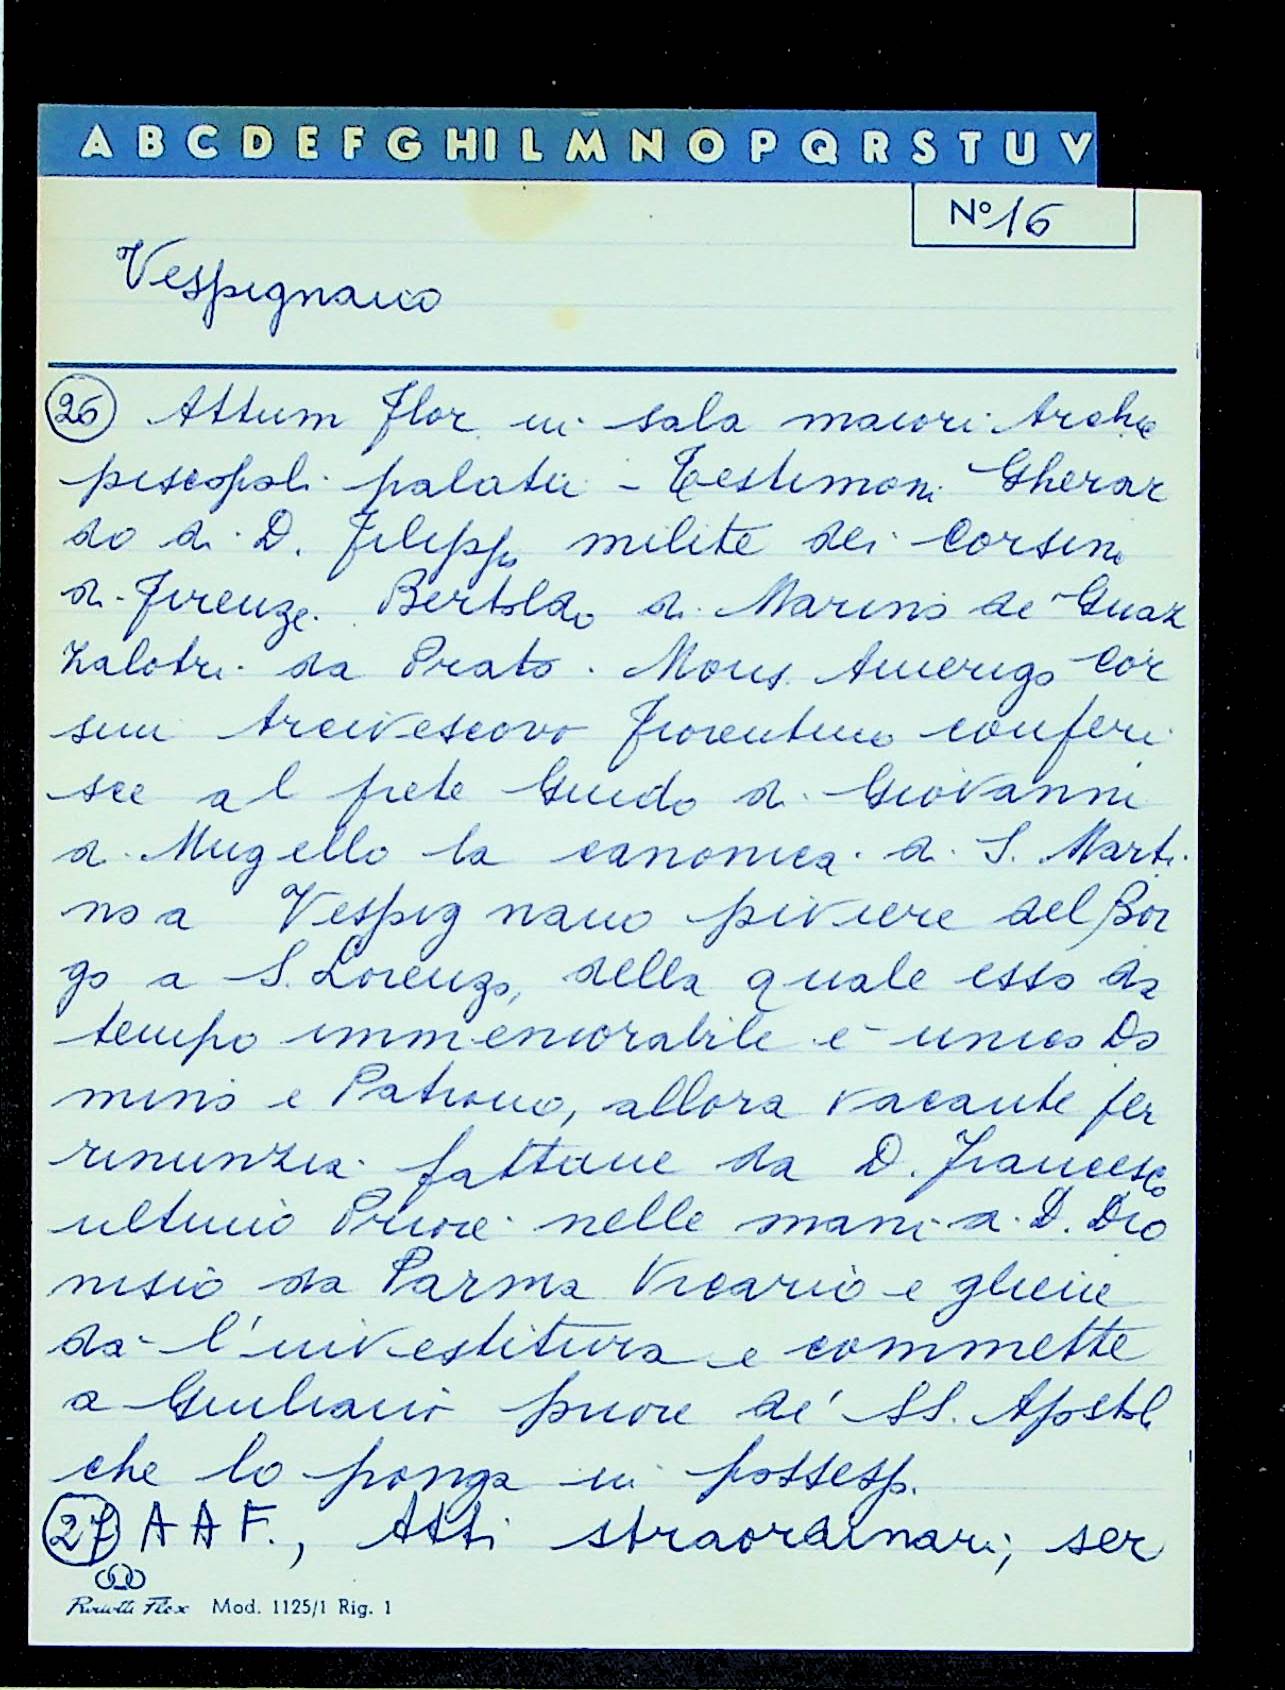 A B C D E F G HI L M N O P Q R S T U V
No 16
Vespignano
26 Attum Flor in sala maiori Archie
piscopali palatii - Testimoni Gherar
do di D. Filippo milite dei Corsini
di Firenze. Bertoldo di Marino de Guaz
zalotri da Prato. Mons. Amerigo Cor
sini Arcivescovo Fiorentino conferi
sce al prete Guido di Giovanni
di Mugello la canonica di S. Marti
no a Vespignano piviere del Bor
go a S. Lorenzo, della quale esso da
tempo immemorabile è unico Do
mino e Patrono, allora vacante per
rinunzia fattane da D. Francesco
ultimo Priore nelle mani di D. Dio
nisio da Parma Vicario e gliene
dà l'investitura e commette
a Giuliano priore de' SS. Apostoli
che lo ponga in possesso.
27 A A F., Atti straordinari, ser
Mod. 1125/1 Rig. 1